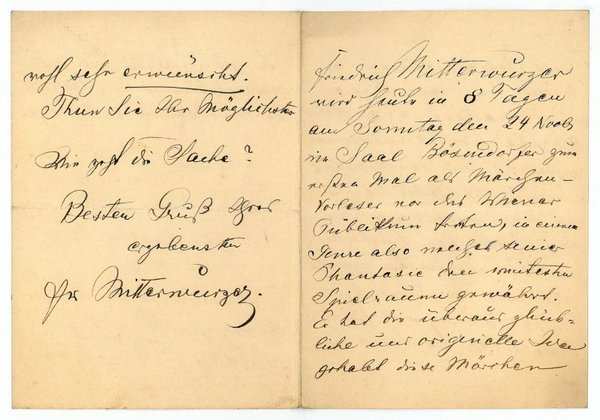 wohl sehr erwünscht.
Thun Sie Ihr Möglichstes
Wie geht die Sache?
Besten Gruß Ihres
ergebensten
Fr Mitterwurzer.
Friedrich Mitterwurzer
wird heute in 8 Tagen
am Sonntag den 24 Novb
im Saal Bösendorfer zum
ersten Mal als Märchen-
Vorleser vor das Wiener
Publikum treten, in einem
Genre also welches seiner
Phantasie den weitesten
Spielraum gewährt.
Er hat die überaus glück-
liche und originelle Idee
gehabt diese Märchen